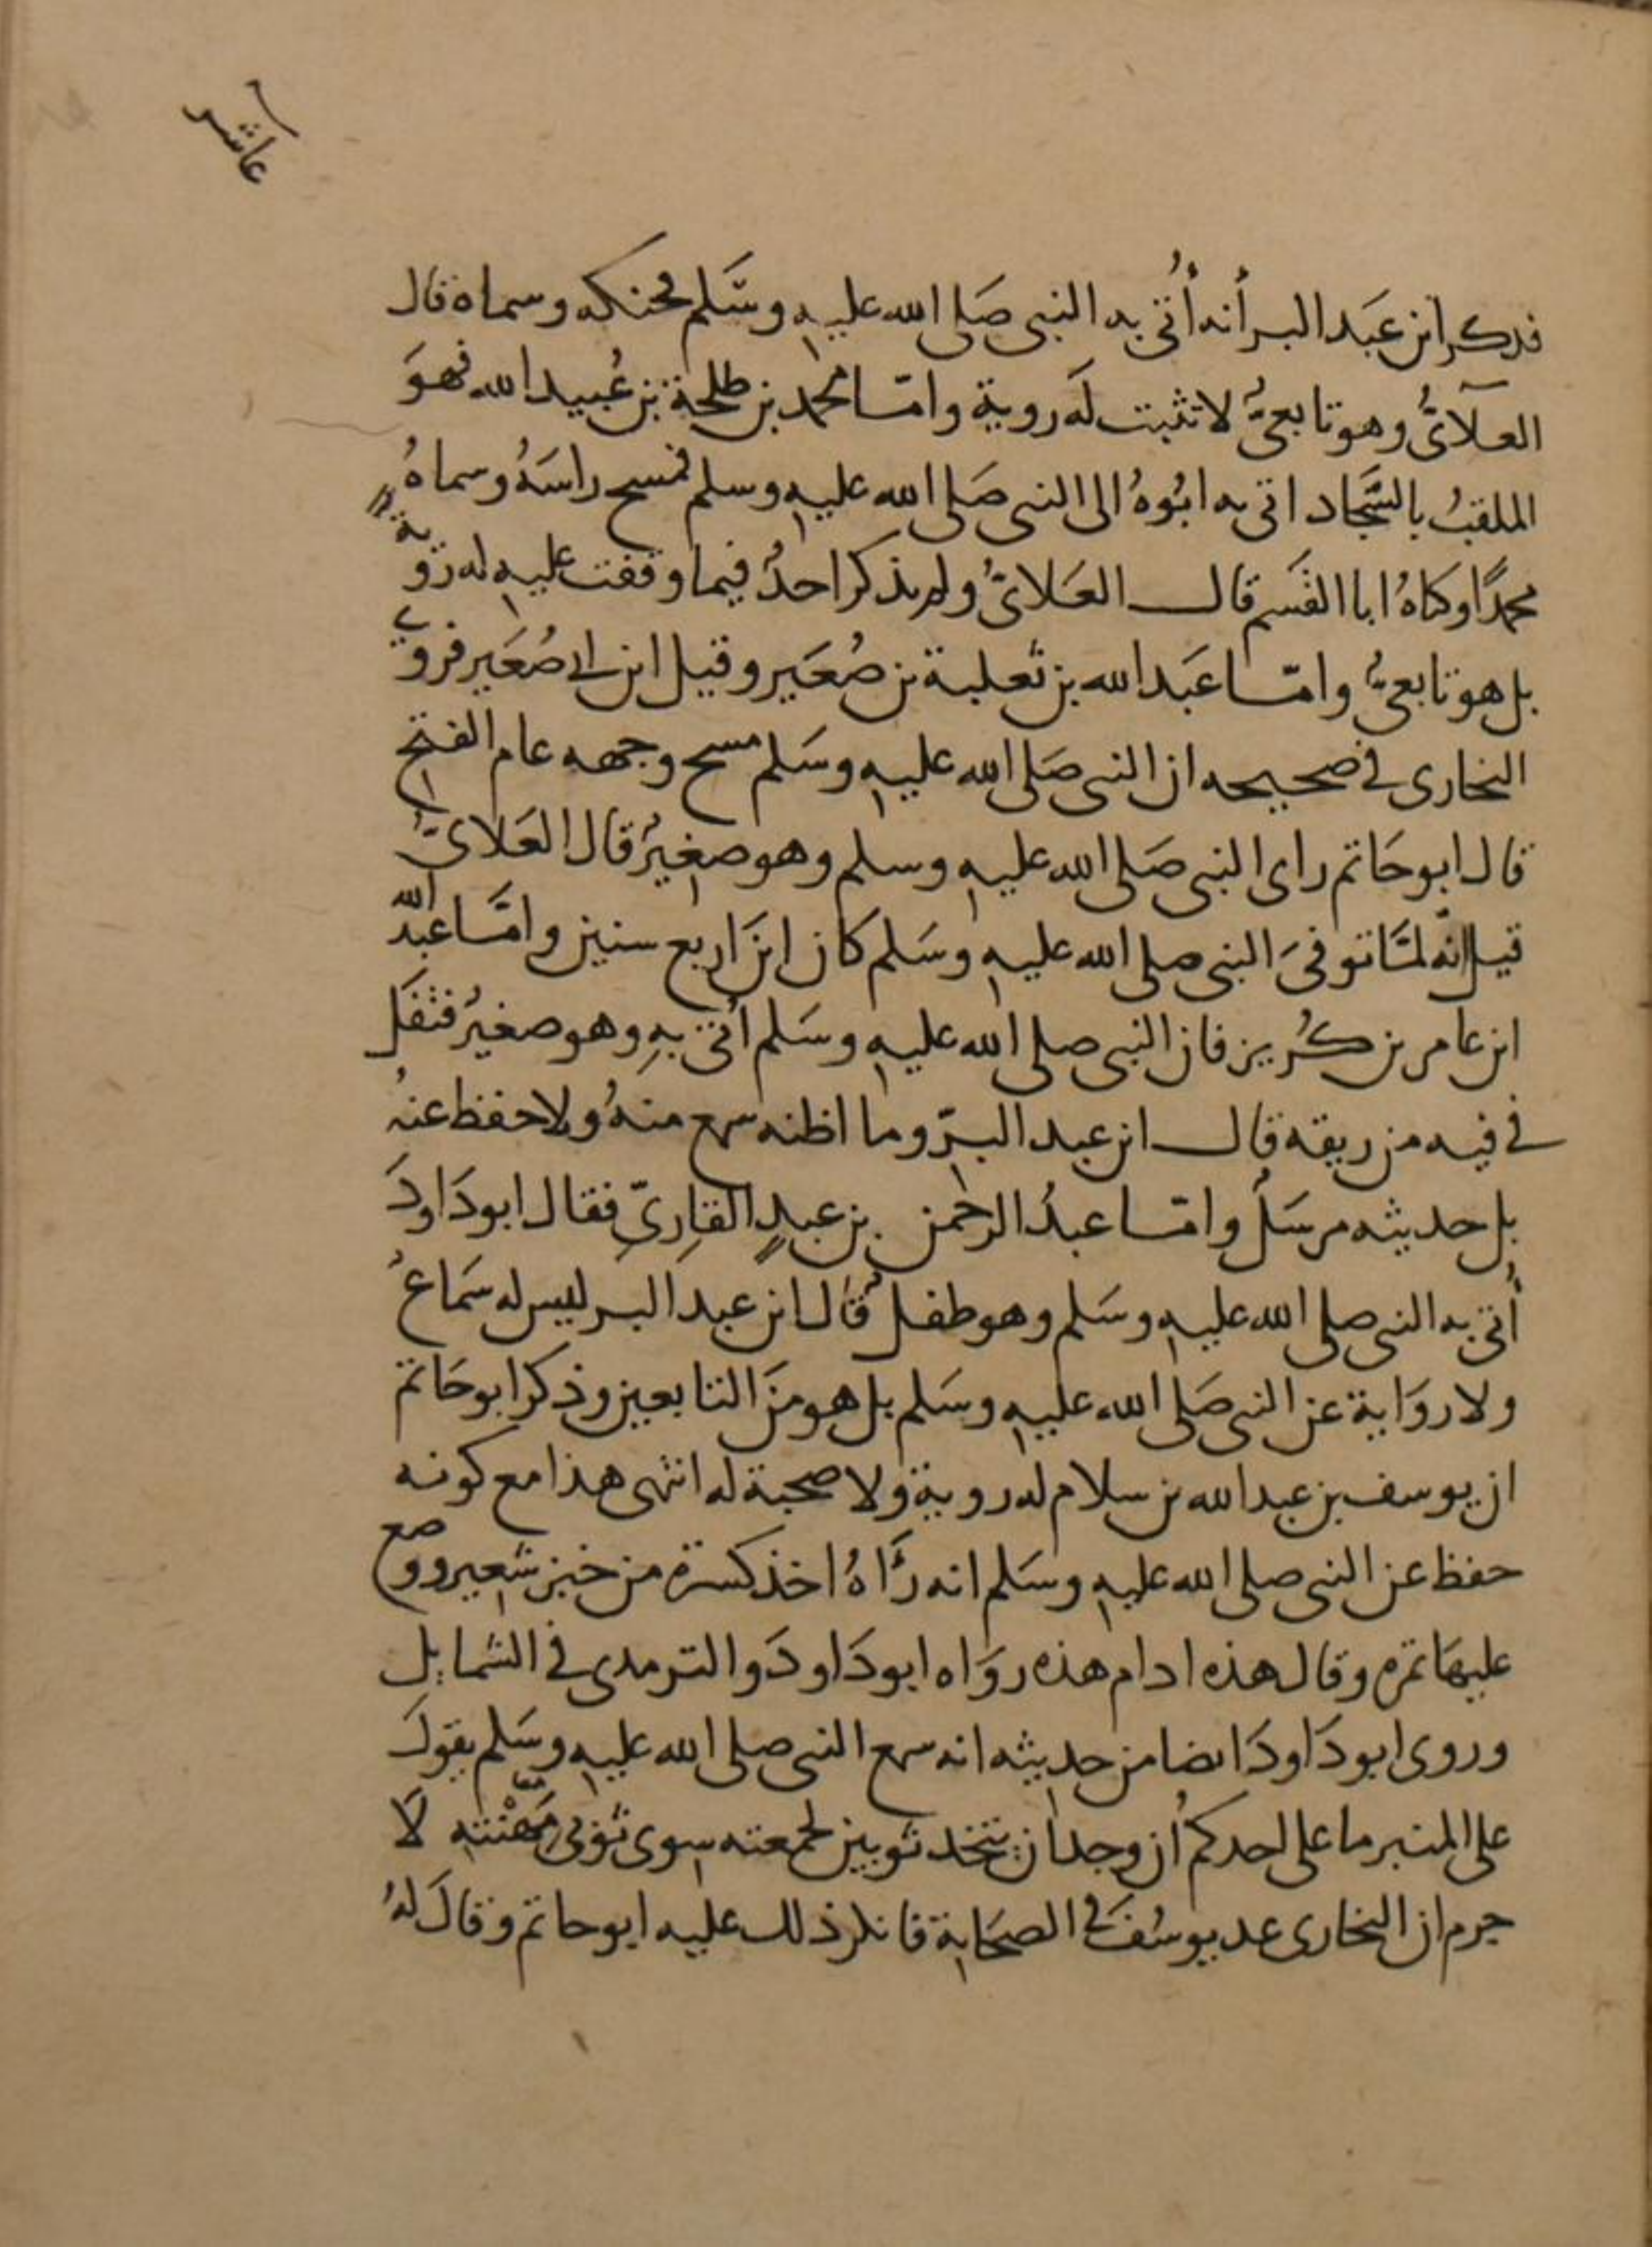 عاشر
فذكر ابن عَبد البر أنه أُتى به النبى صَلى الله عليه وسَّلم فحنكه وسماه قال
العلآئىُّ وهو تابعىُّ لا تثبت لَه روية وامّا محمد بن طلحة بن عُبيد الله فهوَ
الملقبُ بالسَّجاد اتى به ابُوهُ الى النبى صَلى الله عليه وسلم فمسح راسَهُ وسماهُ
محمدًا وكناهُ ابا القسم قال العَلائىُّ ولم يذكر احدُ فيما وقفت عليه له روية
بل هو تابعىُّ وامّا عَبد الله بن ثعلبة بن صُعَير وقيل ابن ابى صُعَير فروى
البخارى فى صحيحه ان النبى صَلى الله عليه وسَلم مسح وجهه عام الفتح
قال ابو حَاتم راى النبى صَلى الله عليه وسلم وهو صغيرُ قال العَلائىُّ
قيل انّه لمَّا توفىَ النبى صلى الله عليه وسَلم كان ابنَ اربع سنين وامَّا عبدُ الله
ابن عامر بن كُريز فان النبى صلى الله عليه وسَلم أتى بهِ وهو صغيرُ فتفَل
فى فيه من ريقه قال ابن عبد البرّ وما اظنه سمع منهُ ولا حفظ عنهُ
بل حديثه مرسَلُ وامّا عبدُ الرحمن بن عبدٍ القارِىّ فقال ابو دَاودَ
أُتى به النبى صلى الله عليه وسَلم وهو طفلُ قال ابن عبد البر ليس له سَماعُ
ولا روَاية عن النبى صَلى الله عليه وسَلم بل هو منَ التابعين وذكر ابو حَاتم
ان يوسف بن عبد الله بن سلام له روية ولا صحبة له انتهى هذا مع كونه
حفظ عن النبى صلى الله عليه وسَلم انه رَآهُ اخذ كسرة من خبز شعير ووضع
عليهَا تمرة وقال هذه ادام هذه روَاه ابو دَاودَ والترمدى فى الشمايل
وروى ابو دَاودَ ايضا من حديثه انه سمع النبى صلى الله عليه وسَلم يقول
على المنبر ما على احدكم أن وجد ان يتخد ثوبين لجمعته سوى ثوبى مَهْنته لَا
جرم ان البخارى عد يوسُفَ فى الصحَابة فانكر ذلك عليه ابو حاتم وقالَ لهُ